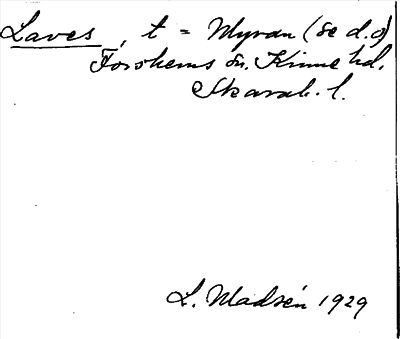 Laves, t = Myran (se d.o)
Forshems sn. Kinne hd.
Skarab. l.
L. Madsén 1929